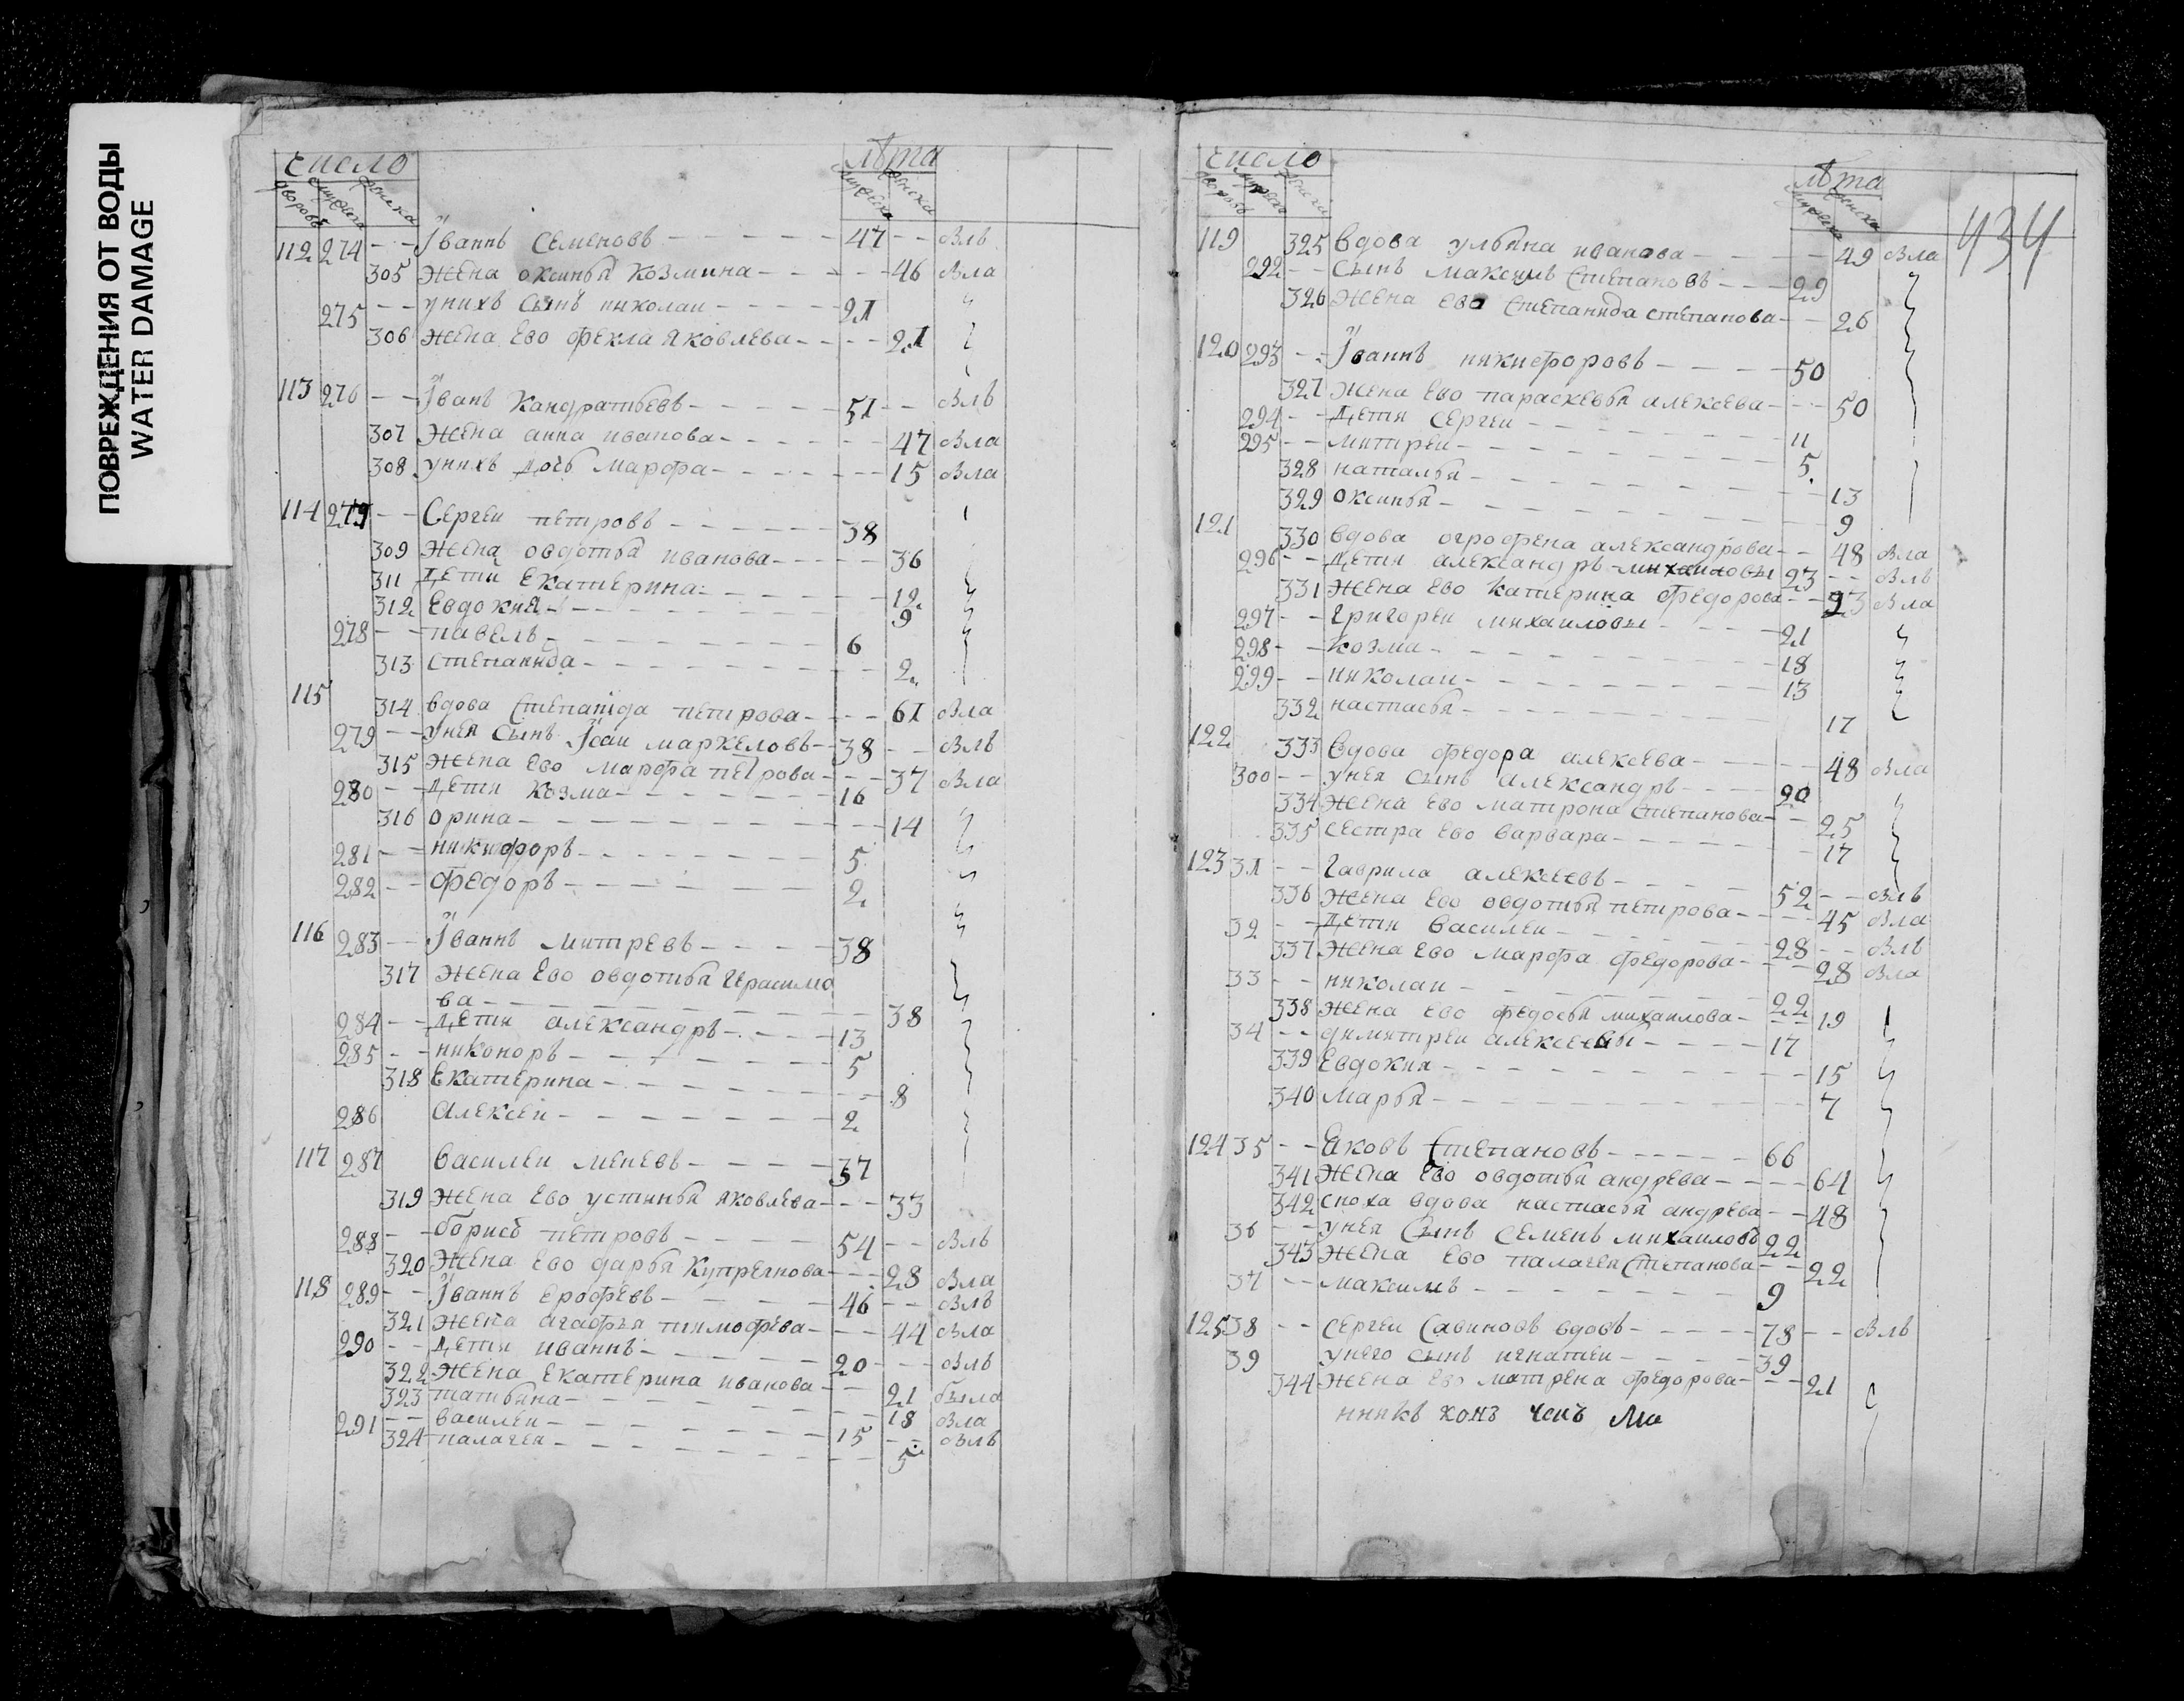 ПОВРЕЖДЕНИЯ ОТ ВОДЫ
WATER DAMAGE
число лѣта
дворовъ мужеска женска мужеска женска
112 274 -- Іваннъ семеновъ 47 -- бѣлъ
305 жена оксинья козмина 46 бѣла
275 -- унихъ сынъ николаи 21
306 жена ево фекла яковлева 21
113 276 -- Іванъ кандратьевъ 51 -- бѣлъ
307 жена анна иванова 47 бѣла
308 унихъ дочь марфа 15 бѣла
114 277 -- Сергеи петровъ 38
309 жена овдотья иванова 36
311 дети екатерина 12
312 евдокия 9
278 -- павелъ 6
313 степанида 2
115
314 вдова степаніда петрова 61 бѣла
279 -- унея сынъ маркеловъ 38 -- бѣлъ
315 жена ево марфа петрова 37 бѣла
280 -- дети козма 16
316 орина 14
281 -- никифоръ 5
282 -- федоръ 2
116 283 -- Іваннъ митревъ 38
317 жена ево овдотья герасимо
ва 38
284 -- дети александръ 13
285 -- никоноръ 5
318 екатерина 8
286 алексеи 2
117 287 василеи 37
319 жена ево устинья яковлева 33
288 -- борисъ петровъ 54 -- бѣлъ
320 жена ево дарья купреянова 28 бѣла
118 289 -- Іваннъ ерофевъ 46 -- бѣлъ
321 жена агафья тимофева 44 бѣла
290 -- дети иваннъ 20 -- бѣлъ
322 жена екатерина иванова 21 была
323 татьяна 18 бѣла
291 -- василеи 15 -- бѣлъ
324 палагея 5
434
число лѣта
дворовъ мужеска женска мужеска женска
119 325 вдова ульяна иванова 49 бѣла
292 -- сынъ максимъ степановъ 29
326 жена ево степанида степанова 26
120 293 -- Іваннъ никифоровъ 50
327 жена ево параскевья алексева 50
294 -- дети сергеи 11
295 -- митреи 5
328 наталья 13
329 оксинья 9
121 330 вдова огрофена александрова 48 бѣла
296 -- дети александръ михаиловы 23 -- бѣлъ
331 жена ево катерина федорова 23 бѣла
297 -- григореи михаиловы 21
298 -- козма 18
299 -- николаи 13
332 настасья 17
122 333 вдова федора алексева 48 бѣла
300 -- унея сынъ александръ 20
334 жена ево матрона степанова 25
335 сестра ево варвара 17
123 31 -- гаврила алексеевъ 52 -- бѣлъ
336 жена ево овдотья петрова 45 бѣла
32 -- дети василеи 28 -- бѣлъ
337 жена ево марфа федорова 28 бѣла
33 -- николаи 22
338 жена ево федосья михаилова 19
34 -- димитреи алексеевы 17
339 евдокия 15
340 марья 7
124 35 -- яковъ степановъ 66
341 жена ево овдотья андрева 64
342 сноха вдова настасья андрева 48
36 -- унея сынъ семенъ михаиловъ 22
343 жена ево палагея степанова 22
37 -- максимъ 9
125 38 -- сергеи савиновъ вдовъ 78 -- бѣлъ
39 унего сынъ игнатеи 39
344 жена ево матрена федорова 21